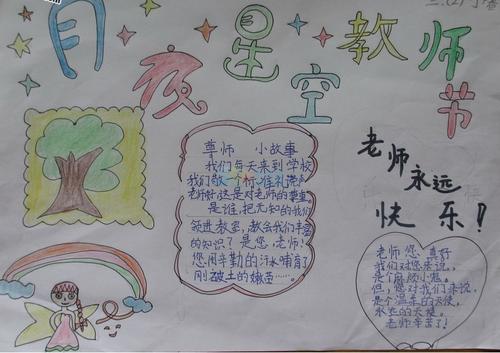 月夜星空教师节
二.(2)
尊师 小故事
我们每天来到学校
我们敬一个标准礼
老师好!这是对老师的尊重。
是谁，把无知的我们
领进教室，教会我们丰富
的知识？是您，老师！
您用辛勤的汗水哺育了
刚破土的嫩苗……。
老师
永远
快乐！
老师您 真好
我们对您来说，
是个麻烦小鬼。
但，您对我们来说，
是个温柔的天使，
永远的天使。
老师辛苦了！